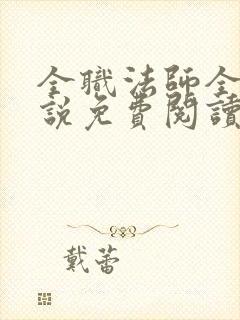 全職法師全
說免費閱讀
戴蕾